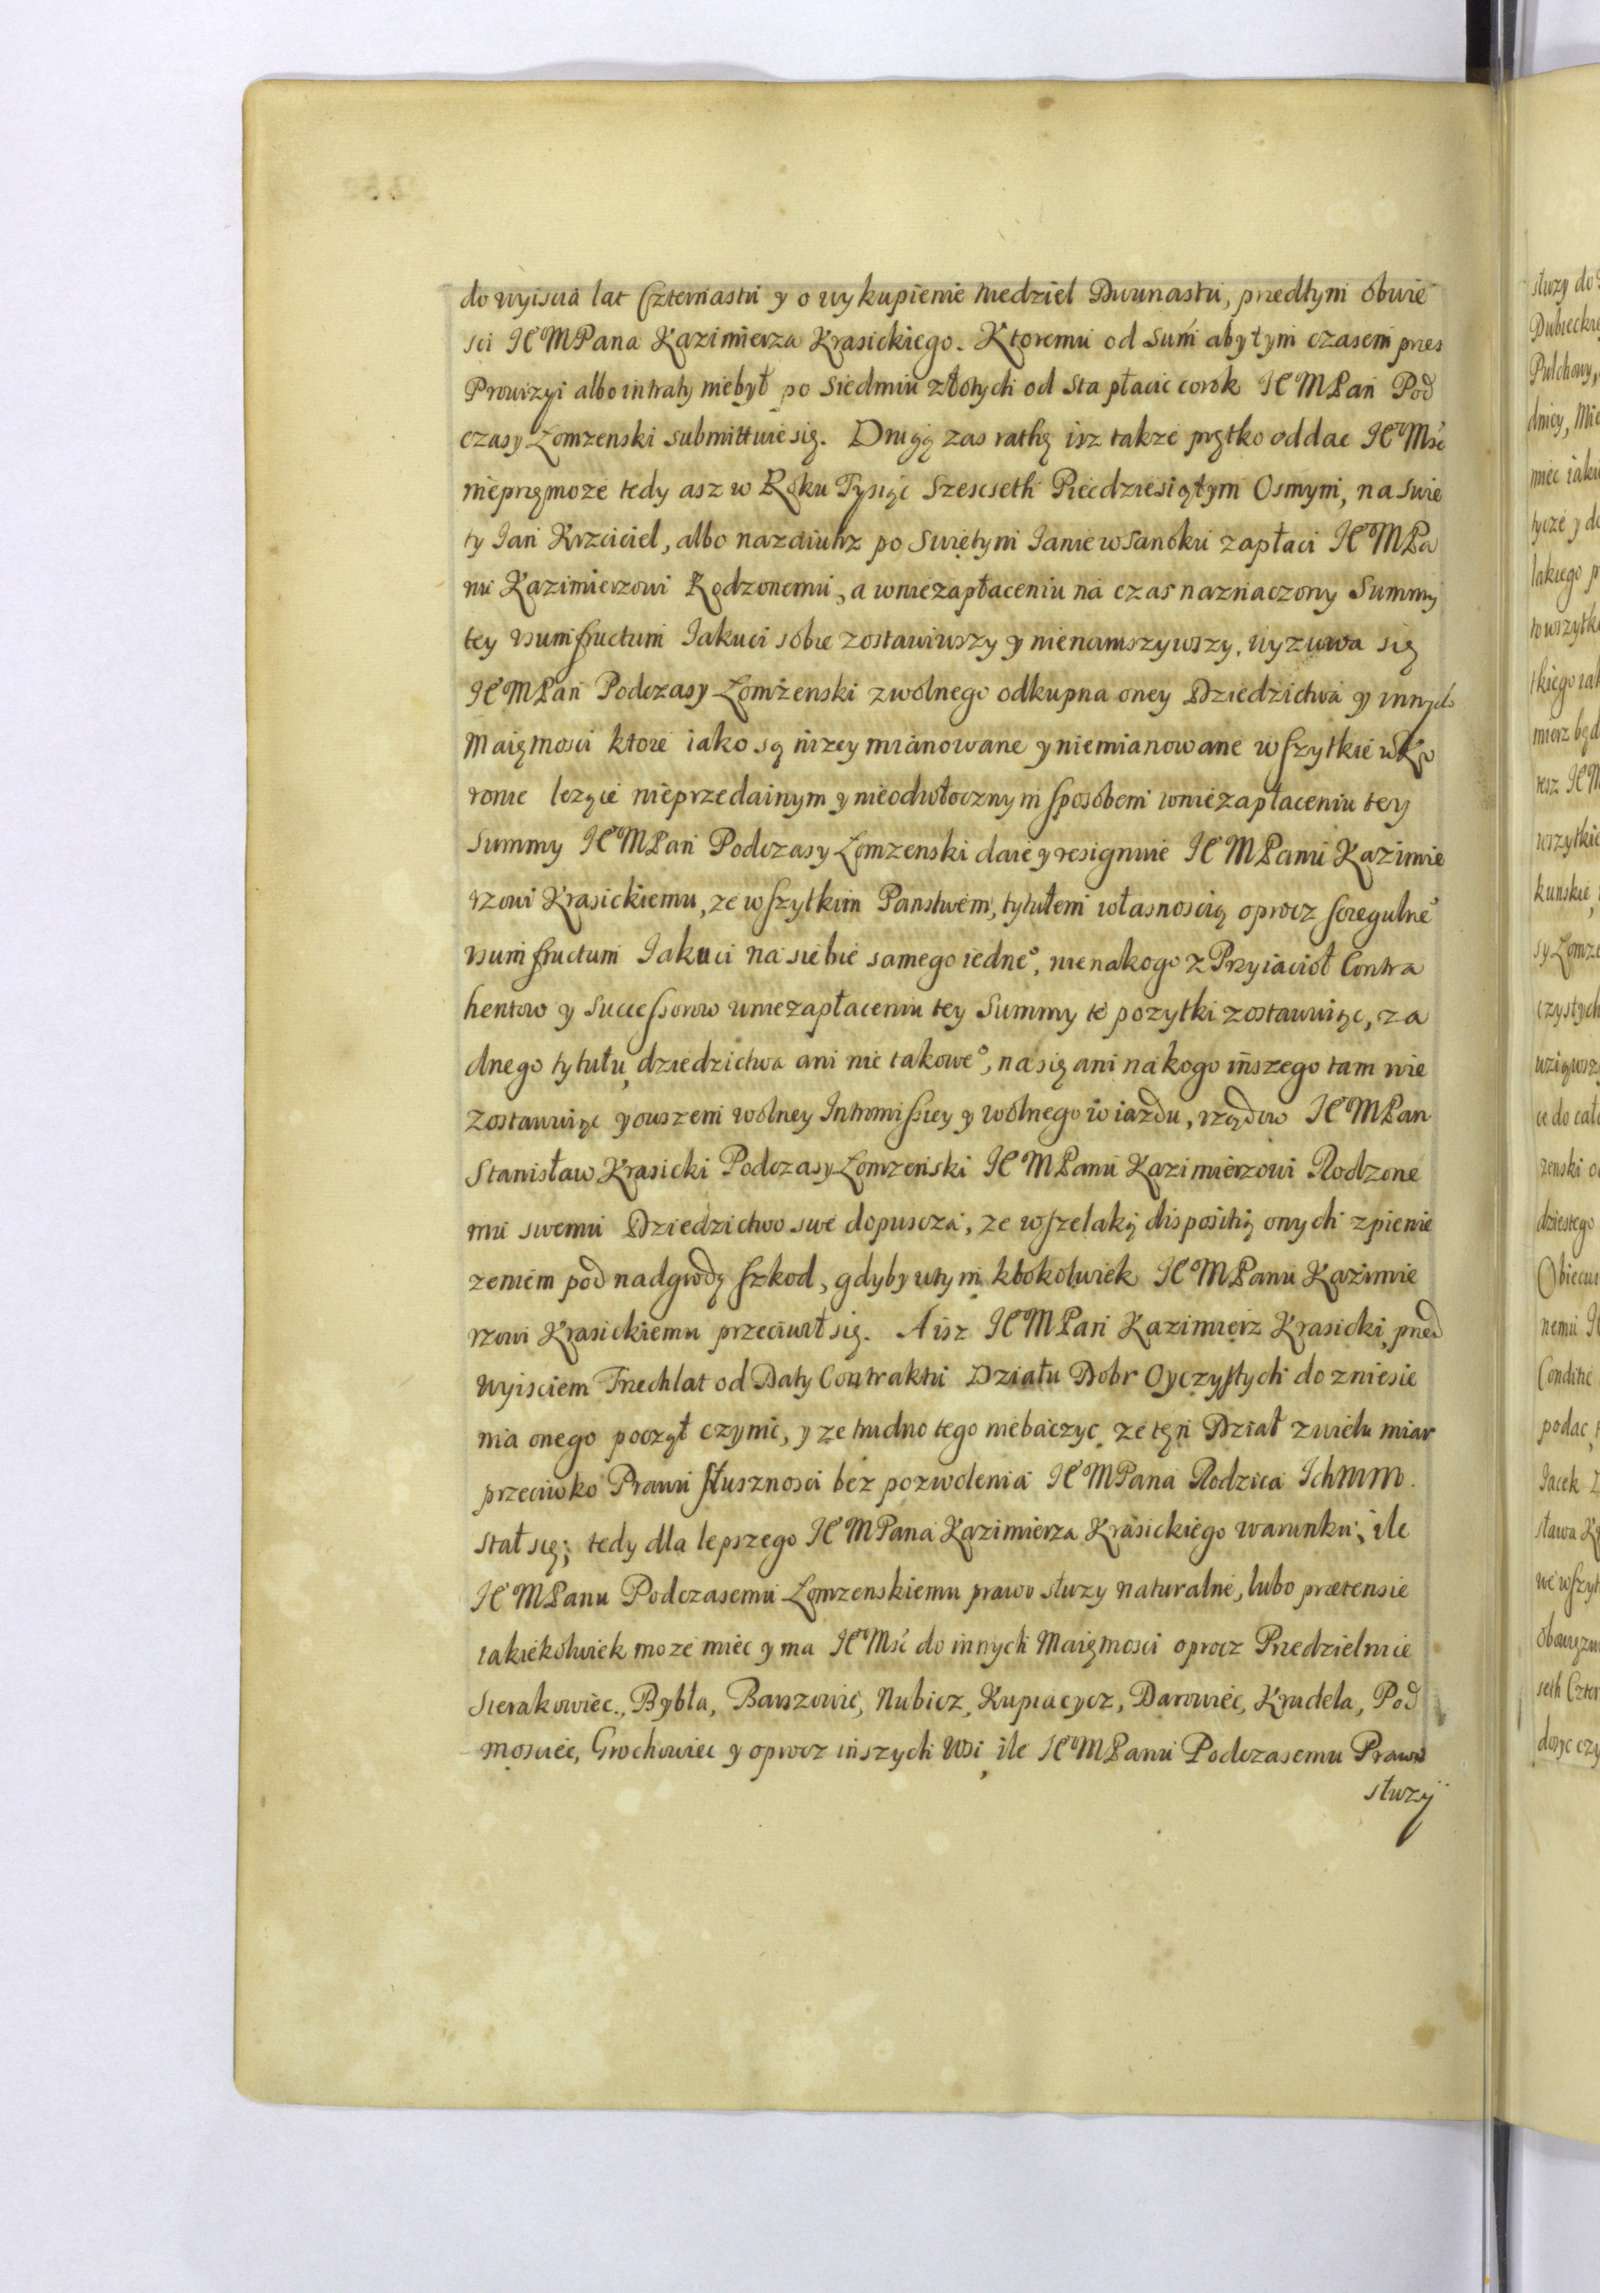 do wyiscia lat Czternastu y o wykupienie Niedziel Dwunastu, przedtym obwie
sci JEMPana Kazimierza Krasickiego. Ktoremu od Sum aby tym czasem przes
Prowizyi albo intraty niebył po Siedmiu złotych od Sta płacic corok JEMPan Pod
czasy Łomzenski submittuie się. Drugą zas rathę isz takze prętko oddac JEMsć
nieprzemoze tedy asz w Roku Tysiąc Szescseth Piecdziesiątym Osmym, na Swie
ty Jan Krzciciel, albo nazaiutrz po Swiętym Janie w Sanoku zapłaci JEMPa
nu Kazimierzowi Rodzonemu, a wniezapłaceniu na czas naznaczony Summy
tey usumfructum Jakuci sobie zostawiwszy y nienaruszywszy, wyzuwa się
JEMPan Podczasy Łomżenski z wolnego odkupna oney Dziedzictwa y innych
Maiętnosci ktore iako są nizey mianowane y niemianowane wszytkie w Ko
ronie lezące nieprzedainym y nieodwłocznym sposobem wniezapłaceniu tey
Summy JEMPan Podczasy Łomzenski daie y resignuie JEMPanu Kazimie
rzowi Krasickiemu, ze wszytkim Panstwem, tytułem własnoscią oprocz scregulne°
usumfructum Jakuci na siebie samego iedne°, nie nakogo z Przyiacioł Contra
hentow y Successorow wniezapłaceniu tey Summy te pozytki zostawuiąc, za
dnego tytułu, dziedzictwa ani nic takowe°, na się ani nakogo inszego tam nie
zostawuiąc y owszem wolney Intromissiey y wolnego wiazdu, rządow JEMPan
Stanisław Krasicki Podczasy Łomzenski JEMPanu Kazimierzowi Rodzone
mu swemu Dziedzictwo swe dopuscza, ze wszelaką dispositią onych z pienie
zeniem pod nadgrodą szkod, gdyby w tym ktokolwiek JEMPanu Kazimie
rzowi Krasickiemu przeciwił się. A isz JEMPan Kazimierz Krasicki, przed
Wyisciem Trzech lat od Daty Contraktu Działu Dobr Oyczystych do zniesie
nia onego począł czynic, y ze trudno tego niebaczyc, ze ten Dział z wielu miar
przeciwko Prawu słusznosci bez pozwolenia JEMPana Rodzica Ichmm.
stał się; tedy dla lepszego JEMPana Kazimierza Krasickiego warunku, ile
JEMPanu Podczasemu Łomzenskiemu prawo słuzy naturalne, lubo prætensie
iakiekolwiek moze miec y ma JEMsć do innych Maiętnosci oprocz Przedzielnice
Sierakowiec, Bybła, Barszowic, Nubicz, Kupiacycz, Darowiec, Krudela, Pod
mosciec, Grochowiec y oprocz inszych Wsi, ile JEMPanu Podczasemu Prawo
słuzy